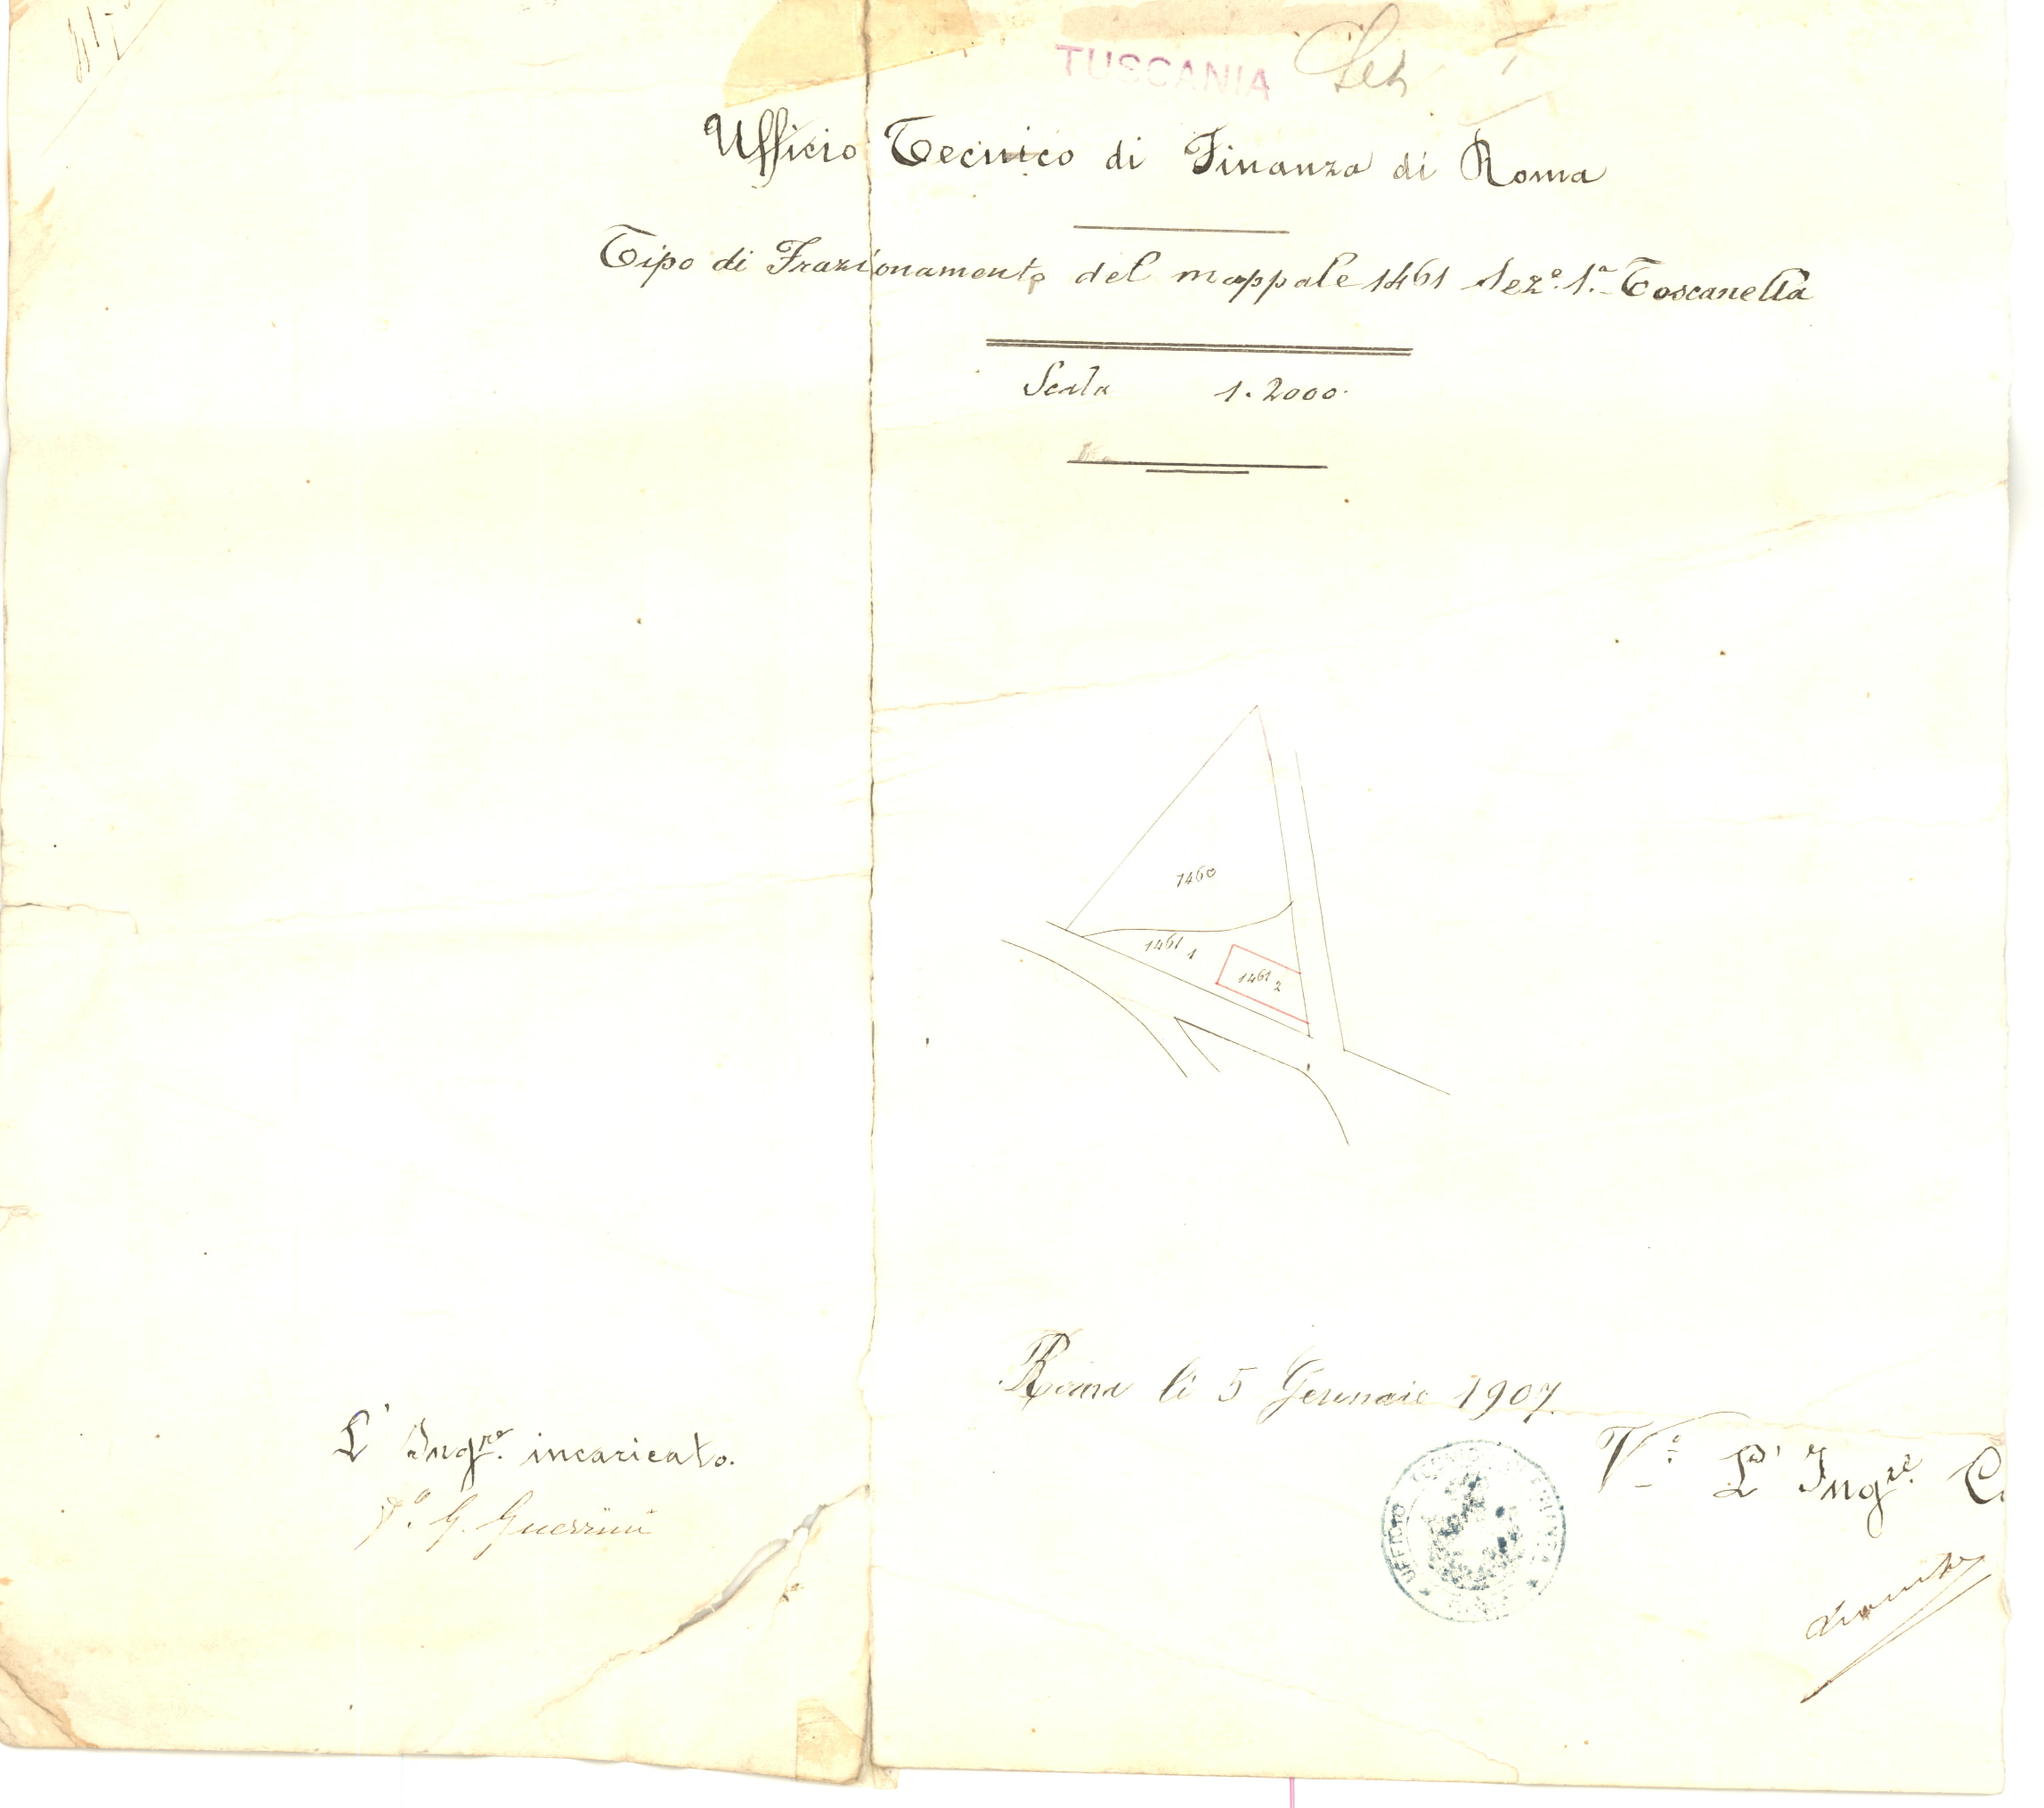 TUSCANIA Sez I
Ufficio Tecnico di Finanza di Roma
Tipo di Frazionamento del mappale 1461 Sez.e 1.a Toscanella
Scala 1.2000.
1460
1461 1
1461 2
Roma li 5 Gennaio 1907.
L'Ing.re incaricato.
F.o G. Guerrini
V.o L'Ing.re C
UFFICIO TECNICO DI FINANZA